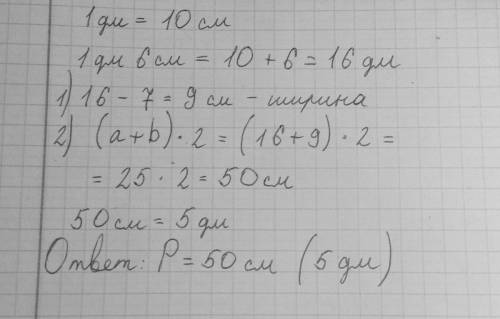 1дм = 10 см
1дм 6 см = 10 + 6 = 16 дм
1) 16 - 7 = 9 см - ширина
2) (a + b) · 2 = (16 + 9) · 2 =
= 25 · 2 = 50 см
50 см = 5 дм
Ответ: P = 50 см (5 дм)